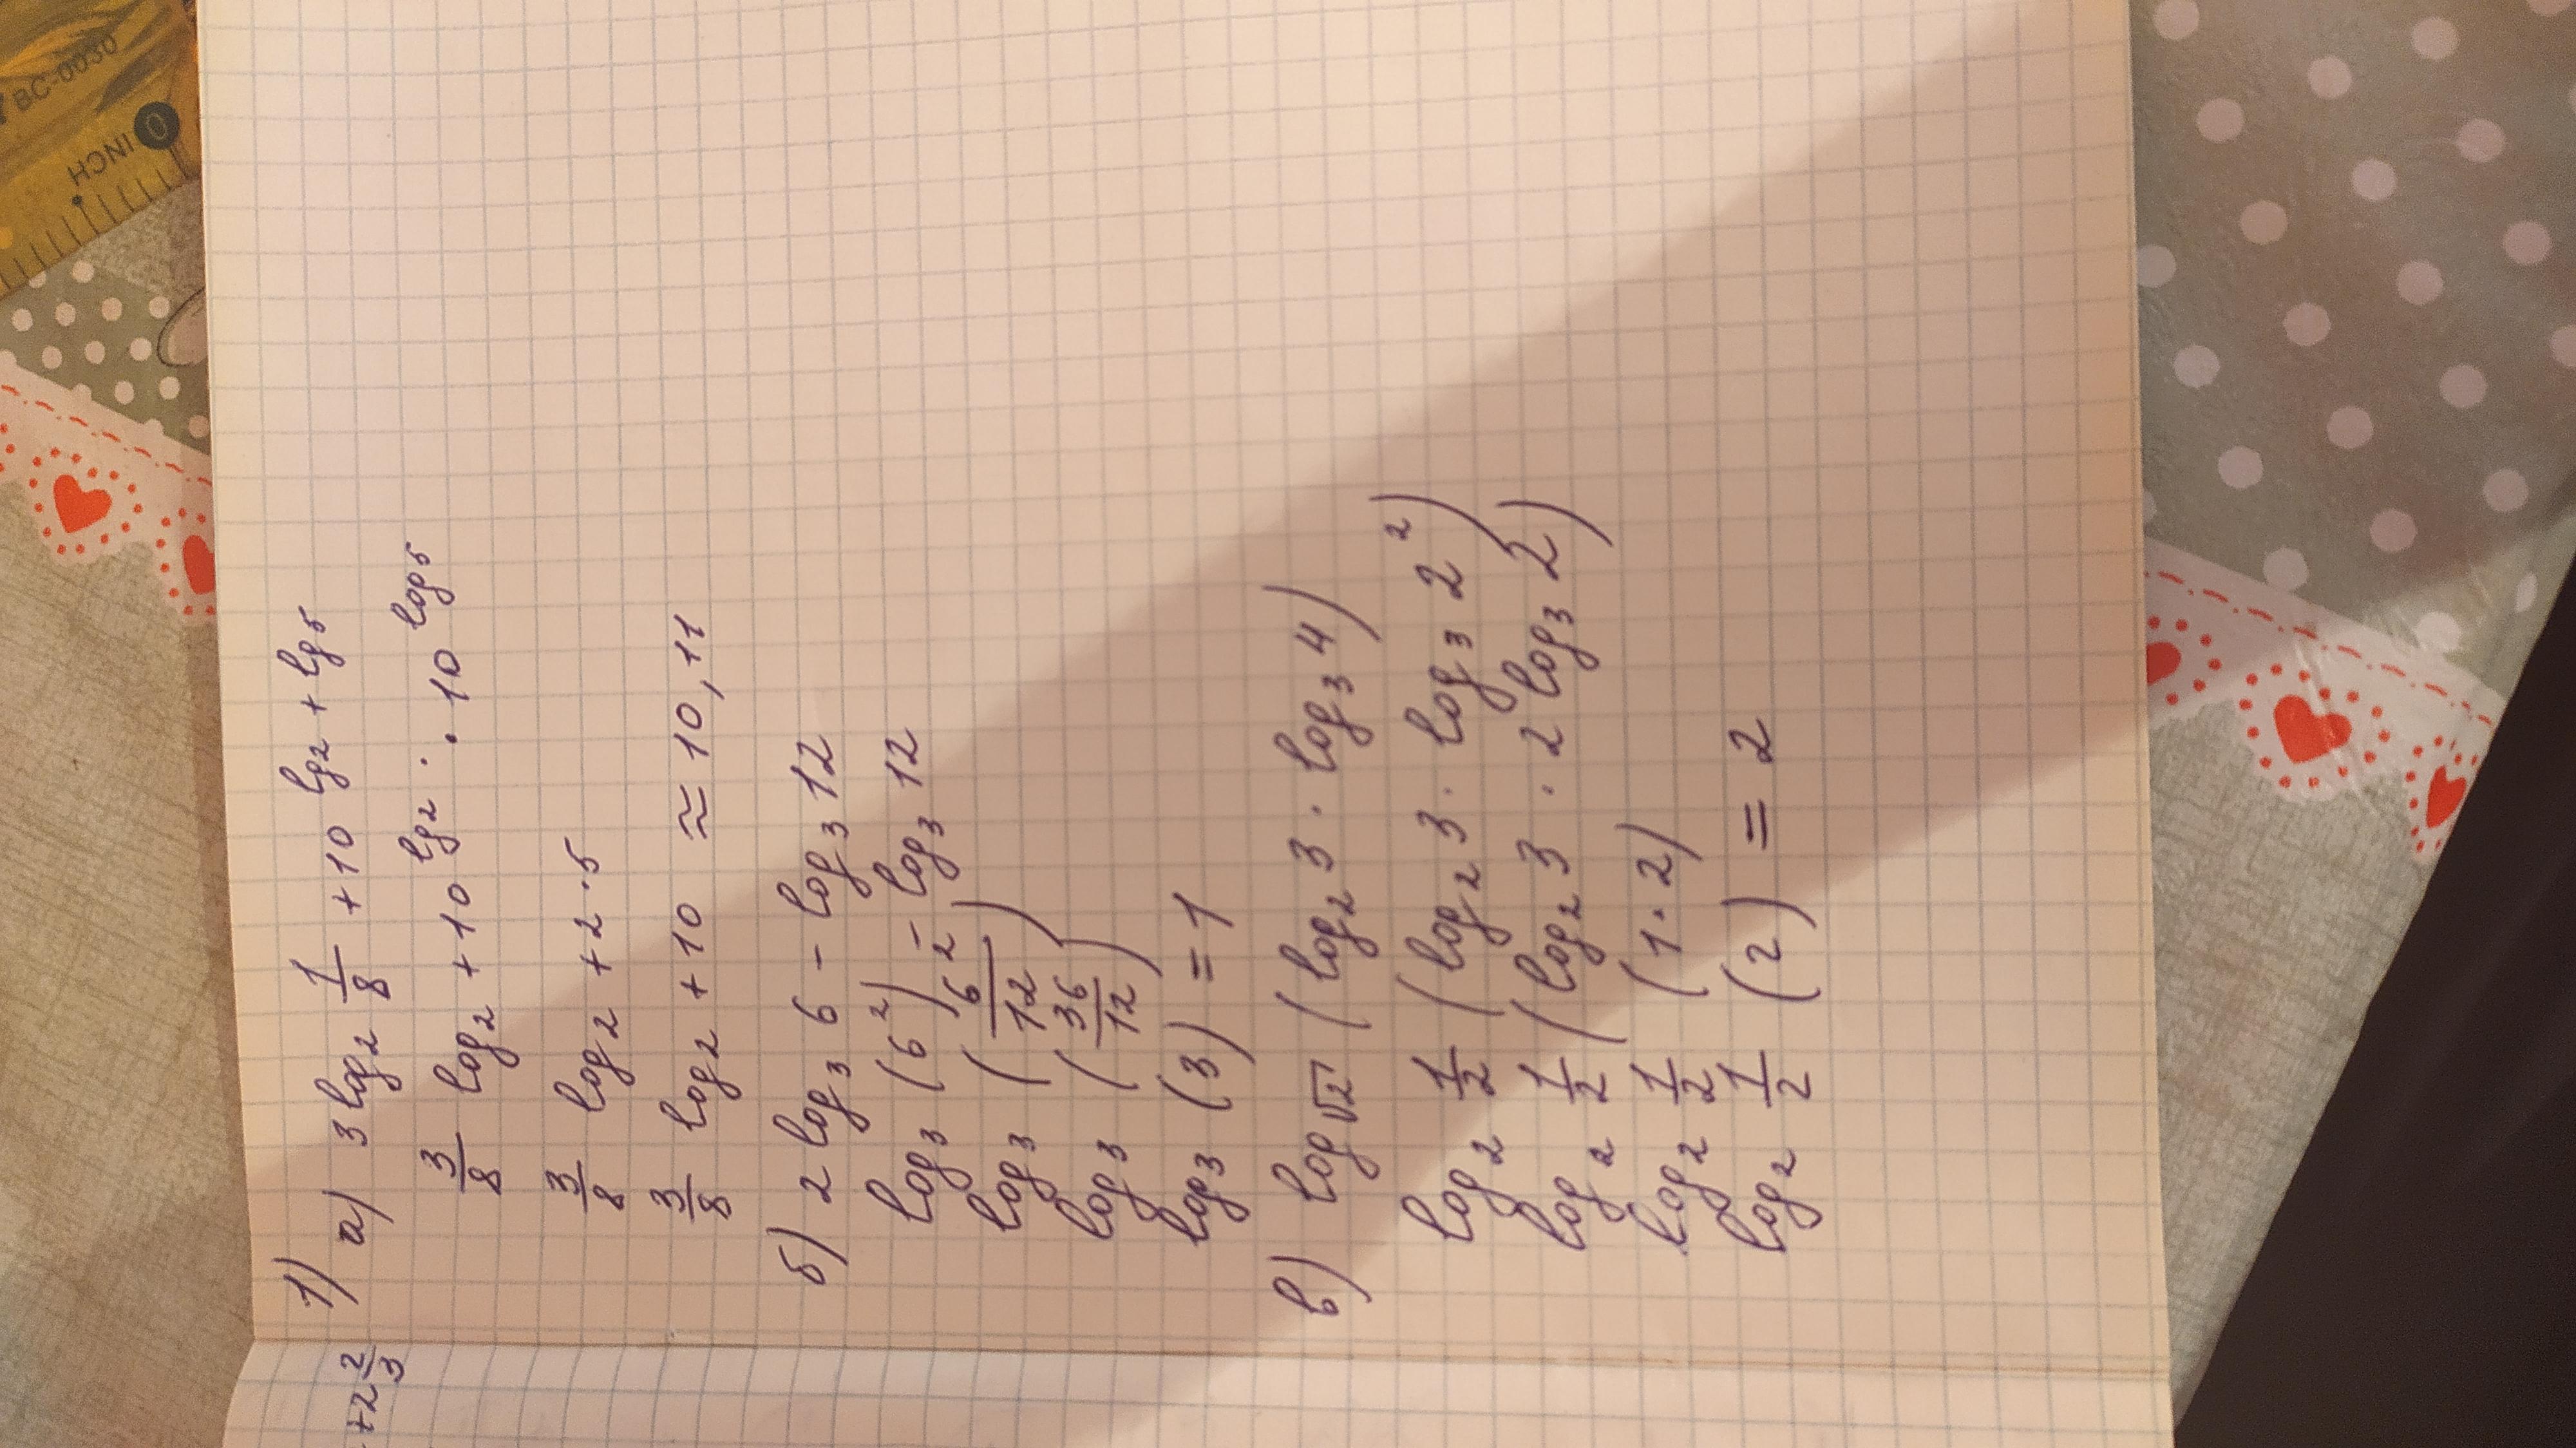 1)
а) 3 log₂ 1/8 + 10 lg2 + lg5
3/8 log₂ + 10 lg2 · · 10 log5
3/8 log₂ + 2 · 5
3/8 log₂ + 10 ≈ 10,11
б) 2 log₃ 6 - log₃ 12
log₃ (6²) - log₃ 12
log₃ (6²/12)
log₃ (36/12)
log₃ (3) = 1
в) log√2 (log₂ 3 · log₃ 4)
log₂ 1/2 (log₂ 3 · log₃ 2²)
log₂ 1/2 (log₂ 3 · 2 log₃ 2)
log₂ 1/2 (1 · 2)
log₂ 1/2 (2) = 2
+2 2/3
BC-0030
INCH
0